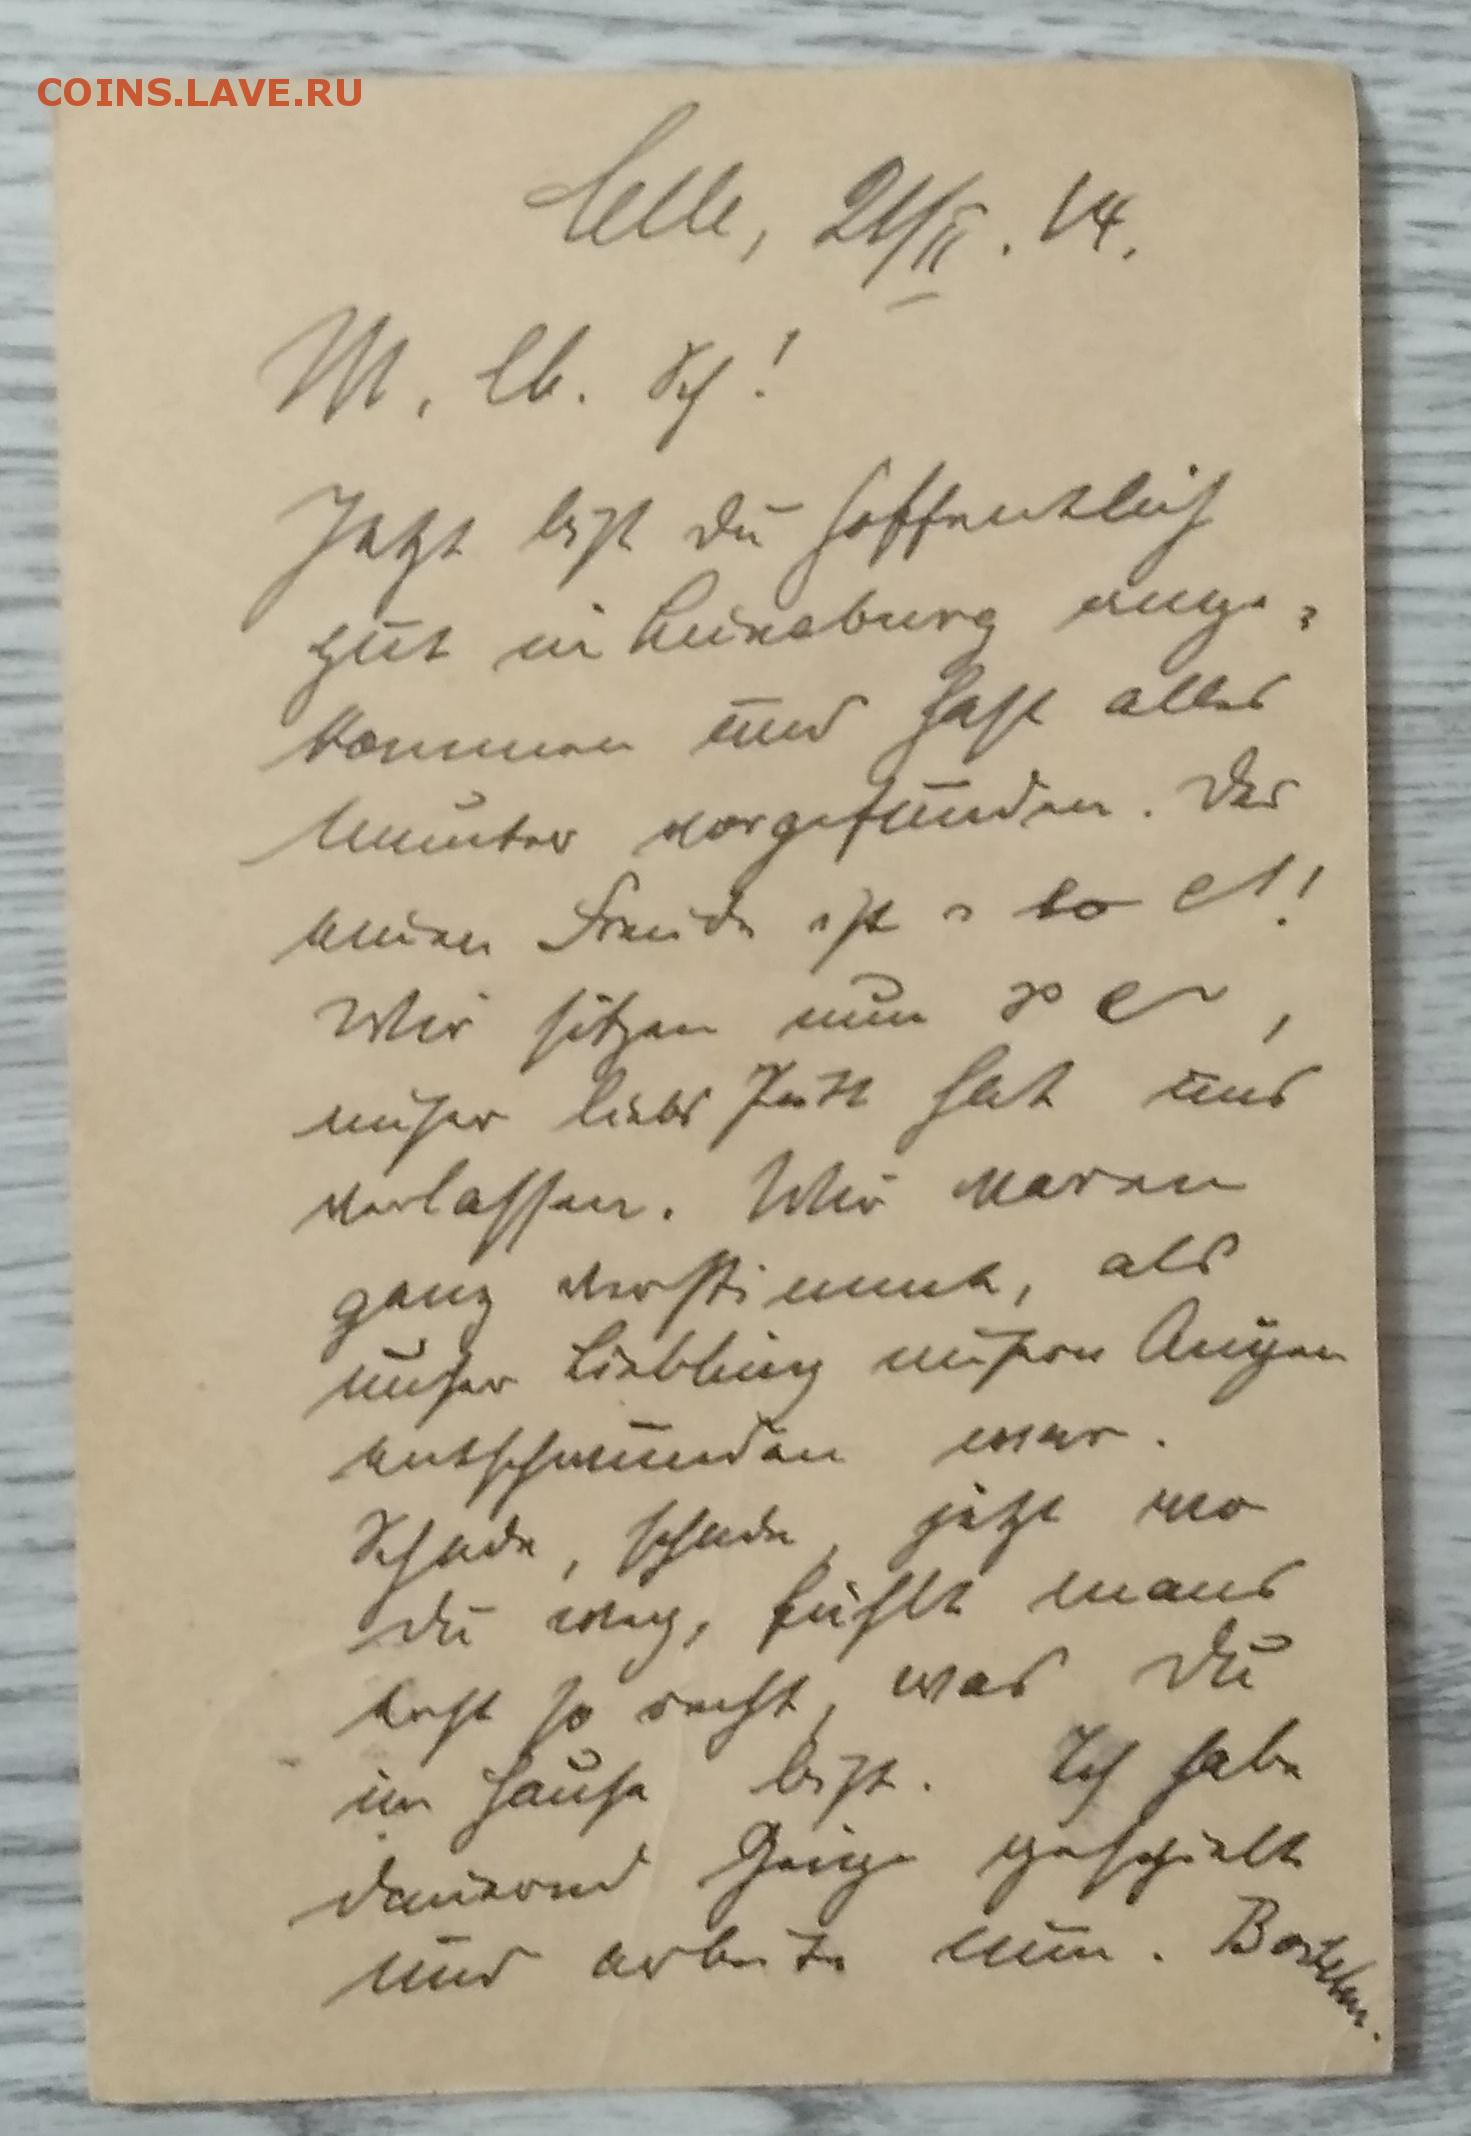 COINS.LAVE.RU
Celle, 21/II. 14.
M. lb. Sch!
Jetzt bist du hoffentlich
gut in Lüneburg ange-
kommen und hast alles
munter vorgefunden. Der
Freude ist
Wir sitzen nun
unser liebes hat uns
verlassen. Wir waren
ganz verstimmt, als
unser Liebling unsern Augen
entschwunden war.
Schade, schade, jetzt wo
du weg, fühlt mans
erst so recht, was Du
im Hause bist. Ich habe
dauernd Geige gespielt
und arbeite nun.